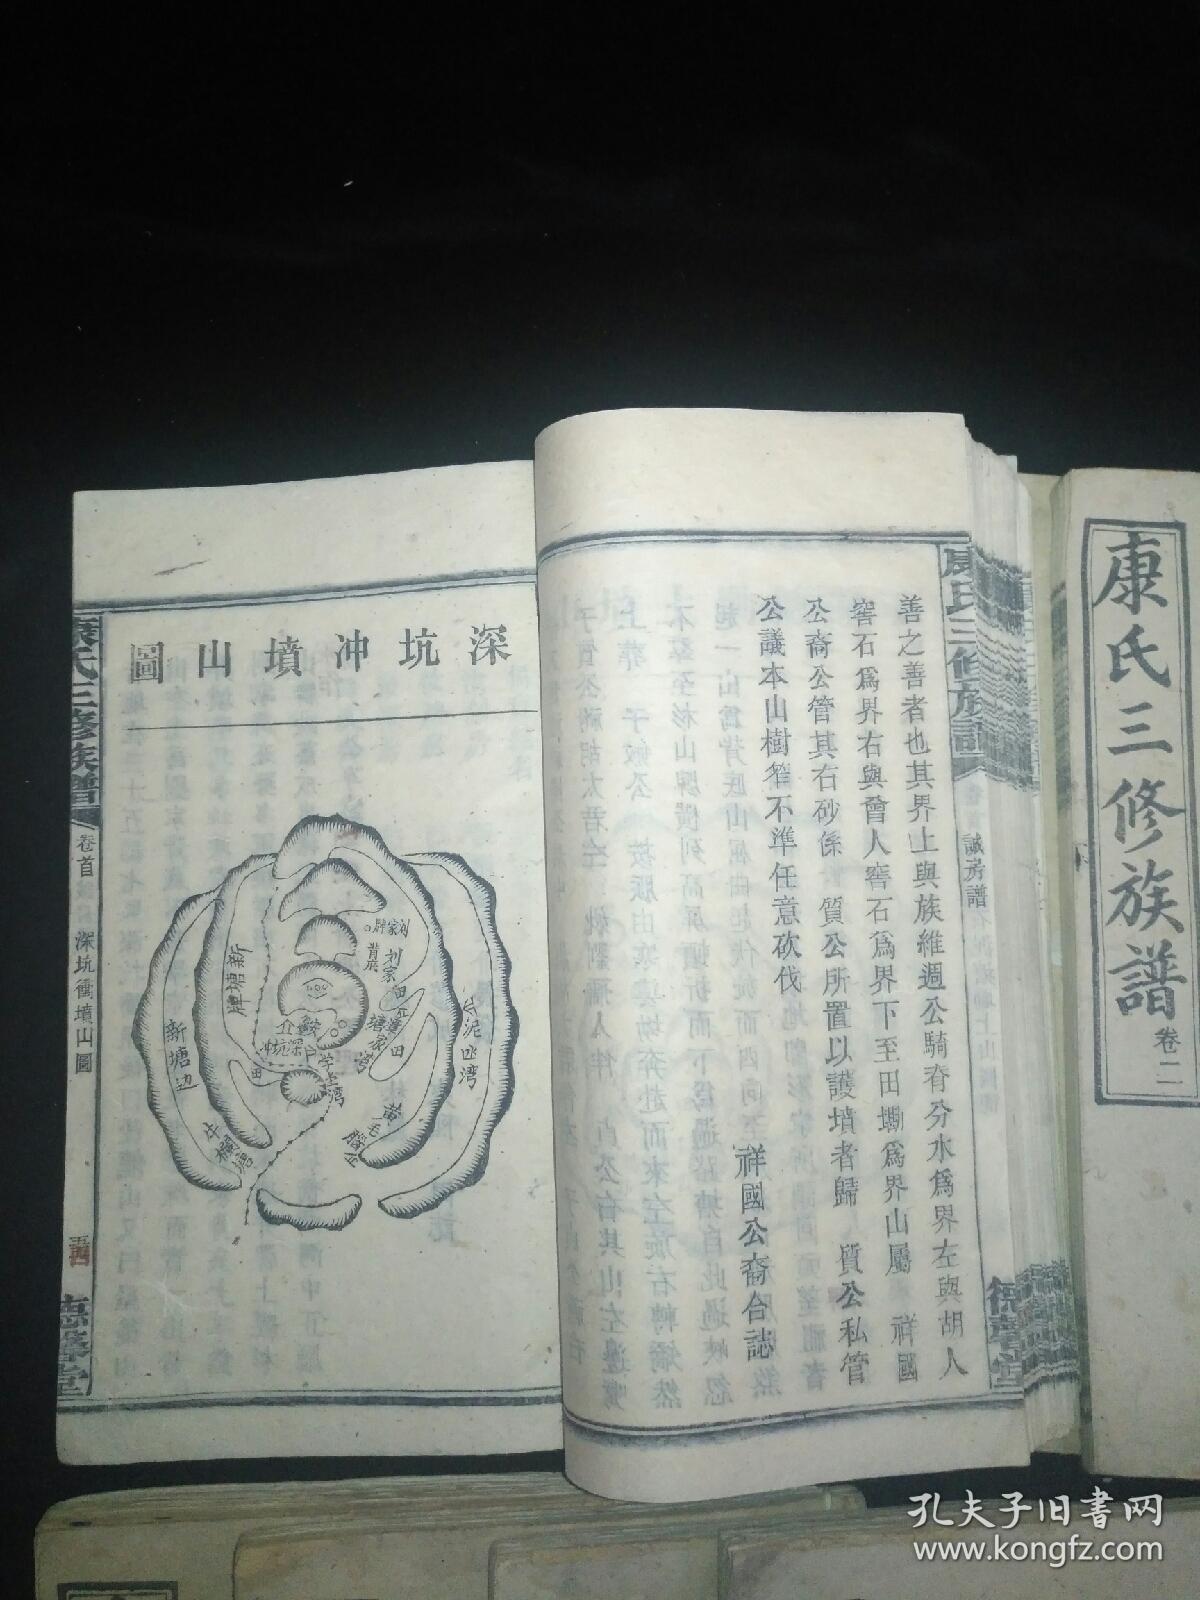 康氏三修族譜
卷二
康氏三修族譜
誠房譜
德馨堂
善之善者也其界上與族維週公騎脊分水爲界左與胡人
窖石爲界右與曾人窖石爲界下至田墈爲界山屬 祥國
公裔公管其右砂係 質公所置以護墳者歸 質公私管
公議本山樹箬不準任意砍伐
祥國公裔合誌
深坑冲墳山圖
新塘裡
新塘边
刘家
塘家湾
学堂湾
深坑冲
康氏三修族譜
卷首
深坑衝墳山圖
德馨堂
孔夫子旧书网
www.kongfz.com